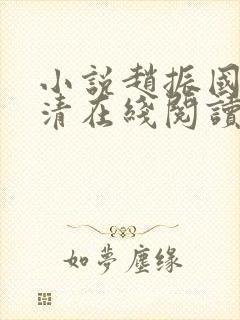 小說趙振國
清在綫閱讀
如夢塵缘